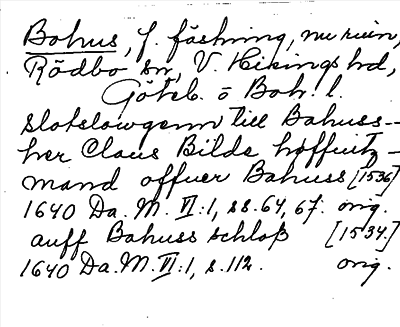 Bohus, f. fästning, nu ruin,
Rödbo sn, V. Hisings hd,
Göteb. o Boh. l.
slotslowgenn till Bahuss –
her Claus Bilde höffuitz –
mand offuer Bahuss [1536]
1640 Da. M. VI:1, ss. 64, 67. orig.
auff Bahuss schloß [1534.]
1640 Da. M. VI:1, s. 112. orig.